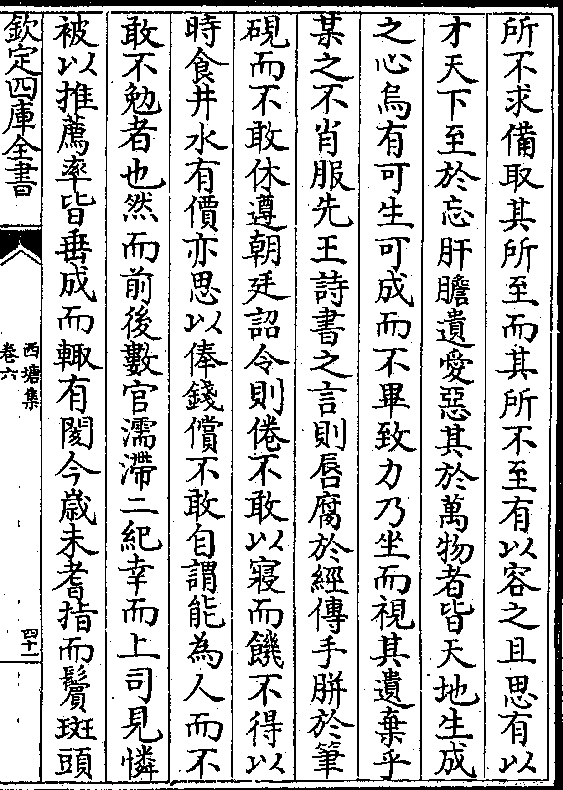 所不求備取其所至而其所不至有以容之且思有以
才天下至於忘肝膽遺愛惡其於萬物者皆天地生成
之心烏有可生可成而不畢致力乃坐而視其遺棄乎
某之不肖服先王詩書之言則唇腐於經傳手胼於筆
硯而不敢休遵朝廷詔令則倦不敢以寢而饑不得以
時食井水有價亦思以俸錢償不敢自謂能為人而不
敢不勉者也然而前後數官濡滯二紀幸而上司見憐
被以推薦率皆垂成而輙有閡今歲未耆指而鬢斑頭
欽定四庫全書
西塘集
卷六
四十一